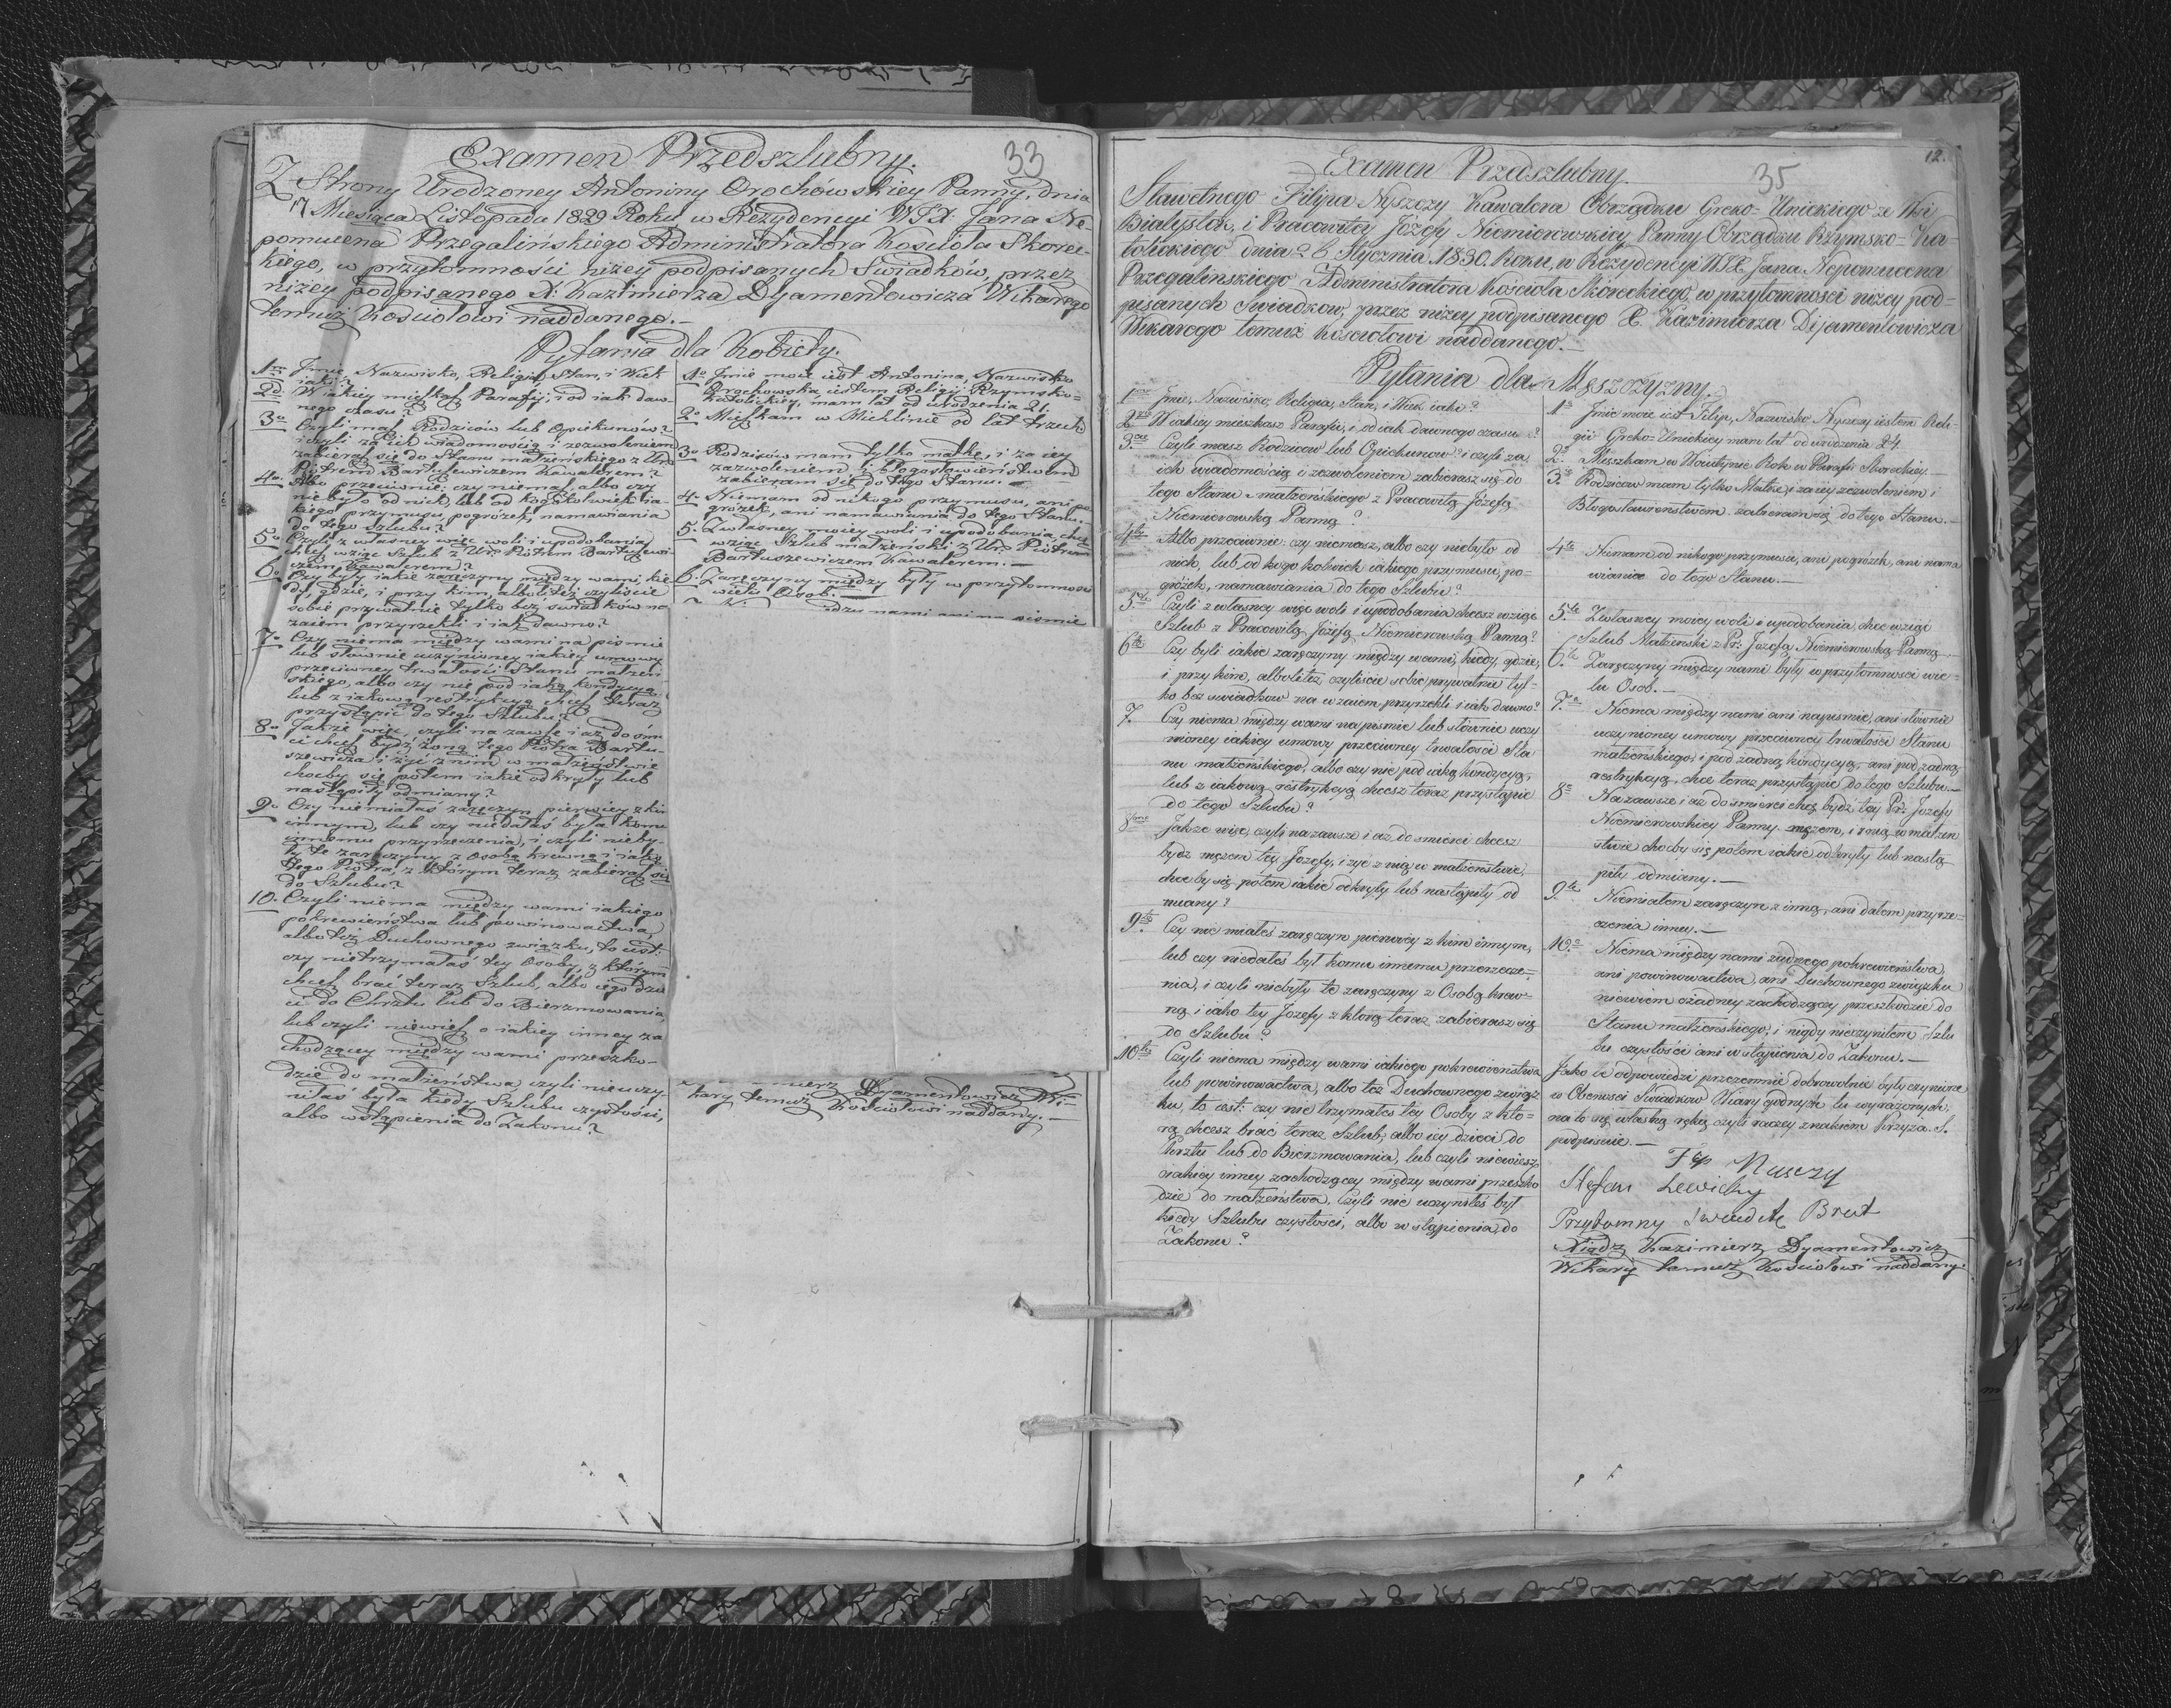 Examen Przedszlubny.
33
Z Strony Urodzoney Antoniny Orochówskiey Panny, dnia
17 Miesiąca Listopada 1829 Roku w Rezydencyi WJX: Jana Ne-
pomucena Przegalińskiego Administratora Kościoła Skorec-
kiego, w przytomności niżey podpisanych Swiadków, przez
niżey podpisanego X: Kazimierza Dyamentowicza Wikarego
temuż Kościołowi naddanego.—
Pytania dla Kobiéty.
1mo Jmie, Nazwisko, Religia, Stan, i Wiek
iaki?
2do W iakiey mięszkasz Parafij, i od iak daw-
nego czasu?
3o Czyli masz Rodziców lub Opiekunów?
i czyli za ich wiadomością i zezwoleniem
zabierasz się do Stanu małżeńskiego z Ur:
Piotrem Bartuszewiczem Kawalerem?
4o Albo przeciwnie: czy niemasz, albo czy
niebyło od nich, lub od kogożkolwiek ia-
kiego przymusu, pogróżek, namawiania
do tego Szlubu?
5o Czyli z własney więc woli i upodobania
chcesz wziąć Szlub z Ur: Piotrem Bartuszewi-
czem Kawalerem?
6o Czy były iakie zaręczyny między wami, kie-
dy, gdzie, i przy kim, albolitéż czyliście
sobie prywatnie tylko bez swiadków na-
zaiem przyrzekli i iak dawno?
7o Czy niema między wami na pismie
lub słownie uczynioney iakiey umowy
przeciwney trwałości Stanu małżeń-
skiego, albo czy nie pod iaką kondycyą,
lub z iakową restrykcyą chcesz teraz
przystąpić do tego Szlubu?
8o Jakże więc, czyli na zawsze i aż do śmier-
ci chcesz bydź żoną tego Piotra Bartu-
szewicza i żyć z nim w małżeństwie
choćby się potem iakie odkryły lub
nastąpiły odmiany?
9o Czy niemiałaś zaręczyn pierwiey z kim
innym, lub czy niedałaś była komu
innemu przyrzeczenia, i czyli nieby-
ły te zaręczyny z osobą krewną i iaką
tego Piotra, z którym teraz zabierasz się
do Szlubu?
10. Czyli niema między wami iakiego
pokrewieństwa lub powinowactwa,
albo też Duchownego związku, to iest:
czy nietrzymałaś tey Osoby, z którym
chcesz brać teraz Szlub, albo iego dzie-
ci do Chrztu lub do Bierzmowania,
lub czyli niewiesz o iakiey inney za-
chodzącey między wami przeszko-
dzie do małżeństwa, czyli nieuczy-
niłaś była kiedy Szlubu czystości,
albo wstąpienia do Zakonu?
1o Jmie moie iest Antonina, Nazwisko
Orochowska, iestem Religij Rzymsko-
Katolickiey, mam lat od urodzenia 26.
2o Mieszkam w Wichlinie od lat trzech.
3o Rodziców mam tylko matkę, i za iey
zazwoleniem i błogosławieństwem
zabieram się do tego Stanu.—
4. Niemam od nikogo przymusu, ani po-
gróżek, ani namawiania do tego Stanu.—
5. Z własney moiey woli i upodobania, chcę
wziąć Szlub małżeński z Ur: Piotrem
Bartuszewiczem Kawalerem.—
6. Zaręczyny między były w przytomności
wielu Osob.—
nami ani na pismie
Dyamentowicz Wi-
kary temuż Kościołowi naddany.—
12.
Examen Przedszlubny.
35
Sławetnego Filipa Nyszczy Kawalera Obrządku Greko-Unickiego ze Wsi
Białystok, i Pracowitey Józefy Niemierowskiey Panny Obrządku Rzymsko-Ka-
tolickiego dnia 6 Stycznia 1830. Roku, w Rezydencyi WJX Jana Nepomucena
Przegalinskiego Administratora Kościoła Skoreckiego, w przytomności niżey pod-
pisanych Swiadkow, przez niżey podpisanego X. Kazimierza Dijamentowicza
Wikarego temuż Kościołowi naddanego.—
Pytania dla Męszczyzny.
1mo Jmie, Nazwisko, Religia, Stan, i Wiek iaki?
2do W iakiey mieszkasz Parafii, i od iak dawnego czasu?
3tio Czyli masz Rodzicow lub Opiekunow? i czyli za
ich wiadomością i zezwoleniem zabierasz się do
tego Stanu małżonskiego z Pracowitą Józefą
Niemierowską Panną?
4to Albo przeciwnie: czy niemasz, albo czy niebyło od
nich, lub od kogo kolwiek iakiego przymusu, po-
gróżek, namawiania do tego Szlubu?
5to Czyli z własney więc woli i upodobania chcesz wziąć
Szlub z Pracowitą Józefą Niemierowską Panną?
6to Czy byli iakie zaręczyny między wami, kiedy, gdzie,
i przy kim, albolitéż czyliście sobie prywatnie tyl-
ko bez swiadkow na wzaiem przyrzekli i iak dawno?
7. Czy niema między wami na pismie lub słownie uczy-
nioney iakiey umowy przeciwney trwałości Sta-
nu małżeńskiego, albo czy nie pod iaką kondycyą,
lub z iakową restrykcyą chcesz teraz przystąpić
do tego Szlubu?
8vo Jakże więc, czyli nazawsze i aż do smierci chcesz
bydź mężem tey Jozefy, i żyć z nią w małżeństwie,
choćby się potem iakie odkryły lub nastąpiły od-
miany?
9to Czy nie miałeś zaręczyn pierwiey z kim innym,
lub czy niedałeś był komu innemu przerzecze-
nia, i czyli niebyły te zaręczyny z Osobą krew-
ną i iako tey Jozefy z ktorą teraz zabierasz się
do Szlubu?
10to Czyli niema między wami iakiego pokrewieństwa
lub powinowactwa, albo toż Duchownego związ-
ku, to iest: czy nie trzymałes tey Osoby z kto-
rą chcesz brać teraz Szlub, albo iey dzieci do
Chrztu lub do Bierzmowania, lub czyli niewiesz
o iakiey inney zachodzącey między wami przeszko-
dzie do małżeństwa, Czyli nie uczyniłeś był
kiedy Szlubu czystosci, albo wstąpienia do
Zakonu?
1o Jmie moie iest Filip, Nazwisko Nyszczy iestem Reli-
gii Greko-Unickiey mam lat od urodzenia 24.
2o Mieszkam w Rok w Parafii Skoreckiey.—
3o Rodzicow mam tylko Matkę, i za iey zezwoleniem i
Błogosławienstwem zabieram się do tego Stanu.—
4to Niemam od nikogo przymusu, ani pogróżek, ani nama-
wiania do tego Stanu.—
5to Z własney moiey woli i upodobania, chcę wziąć
Szlub Małżeński z Pr: Jozefą Niemierowską Panną.
6to Zaręczyny między nami były w przytomnosci wie-
lu Osob.—
7o Niema między nami ani na pismie, ani słownie
uczynioney umowy przeciwney trwałości Stanu
małżeńskiego, i pod żadną kondycyą, ani pod żadną
restrykcyą, chcę teraz przystąpić do tego Szlubu.—
8o Na zawsze i aż do smierci chcę bydź tey Pr: Jozefy
Niemierowskiey Panny mężem, i żyć z nią w małżeń-
stwie choćby się potem iakie odkryły lub nastą-
piły odmiany.—
9to Niemiałem zaręczyn z inną, ani dałem przyrze-
czenia inney.—
10o Niema między nami żadnego pokrewieństwa,
ani powinowactwa, ani Duchownego związku
niewiem o żadney zachodzącey przeszkodzie do
Stanu małżeńskiego, i nigdy nieczyniłem Szlu-
bu czystości ani wstąpienia do Zakonu.—
Jako te odpowiedzi przezemnie dobrowolnie były czynione
w Obecnosci Swiadkow Wiary godnych tu wyrażonych,
na to się własną ręką czyli raczey znakiem Krzyża S.
podpisuię.—
Nyszczy
Stefan Lewicky
Przytomny Swiadek Brat
Xiądz Kazimierz Dyamentowicz
Wikary temuż Kościołowi naddany.